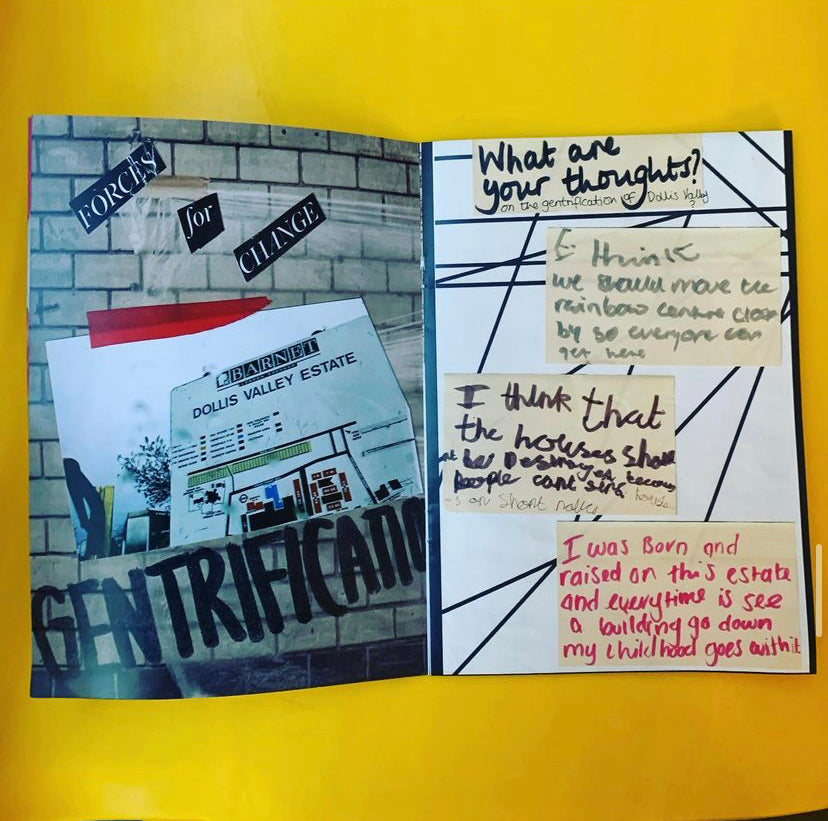 FORCES
for
CHANGE
BARNET
DOLLIS VALLEY ESTATE
GENTRIFICATIO
What are
your thoughts?
on the gentrification of Dollis Valley
?
I think
we should move the
rainbow centre close
by so everyone can
get here
I think that
the houses
be Destroyed
People cant
on short
I was Born and
raised on this estate
and everytime is see
a building go down
my childhood goes with it